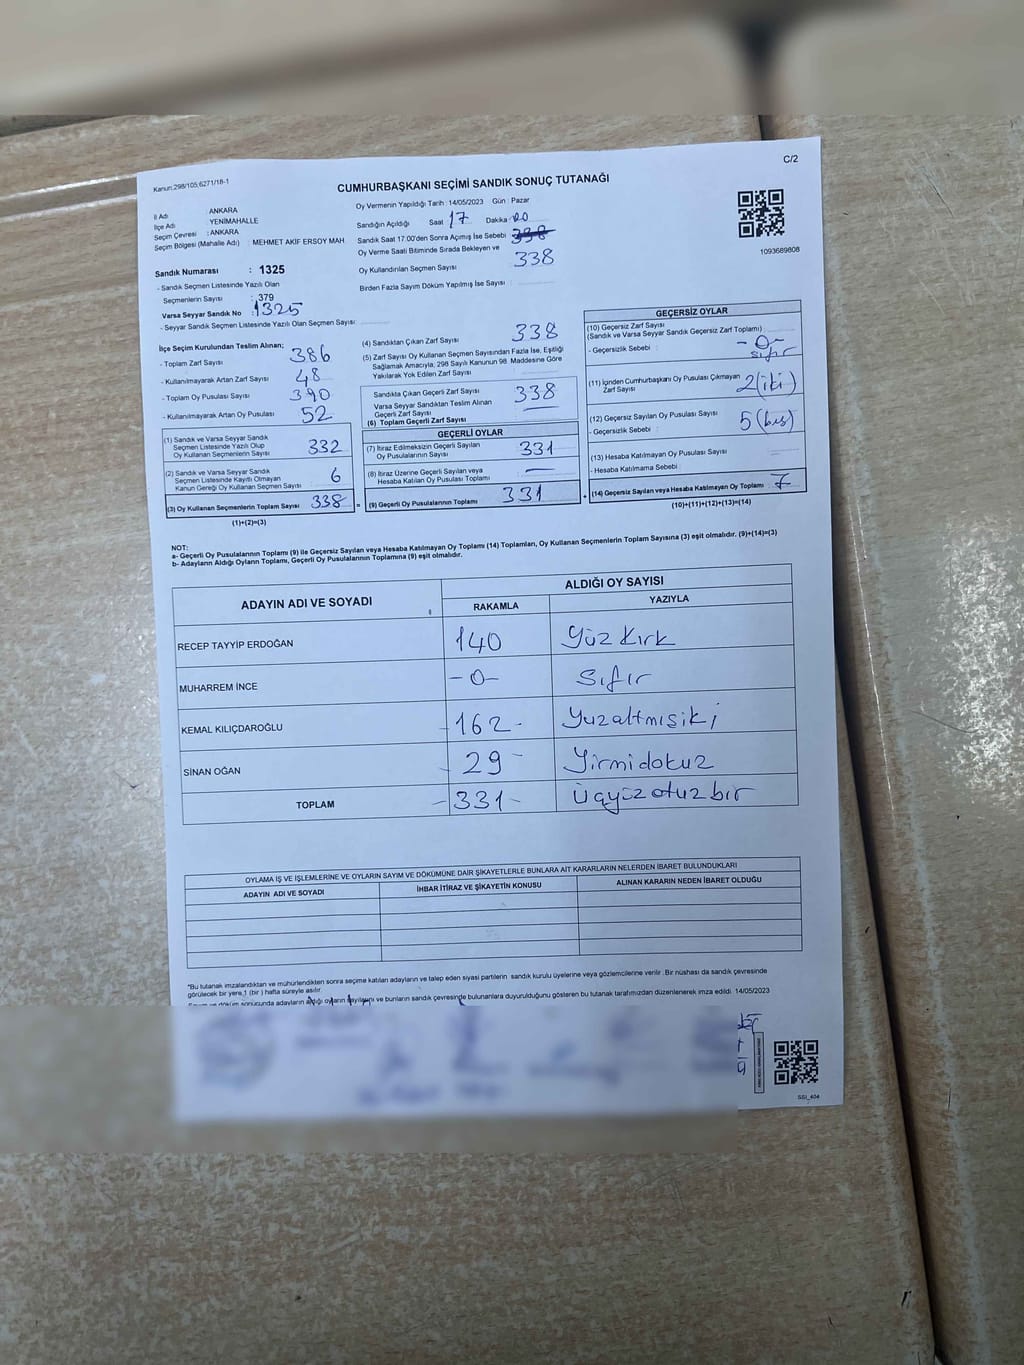 Kanun:298/105;6271/18-1
C/2
CUMHURBAŞKANI SEÇİMİ SANDIK SONUÇ TUTANAĞI
İl Adı ANKARA
İlçe Adı YENİMAHALLE
Seçim Çevresi : ANKARA
Seçim Bölgesi (Mahalle Adı) : MEHMET AKİF ERSOY MAH
Sandık Numarası : 1325
- Sandık Seçmen Listesinde Yazılı Olan
Seçmenlerin Sayısı : 379
Varsa Seyyar Sandık No : 1325
- Seyyar Sandık Listesinde Yazılı Olan Seçmen Sayısı:
Oy Vermenin Yapıldığı Tarih : 14/05/2023 Gün : Pazar
Sandığın Açıldığı Saat 17 Dakika 00
Sandık Saat 17.00'den Sonra Açılmış İse Sebebi 338
Oy Verme Saati Bitiminde Sırada Bekleyen ve
Oy Kullandırılan Seçmen Sayısı : 338
Birden Fazla Sayım Döküm Yapılmış İse Sayısı :
1093689808
İlçe Seçim Kurulundan Teslim Alınan;
- Toplam Zarf Sayısı : 386
- Kullanılmayarak Artan Zarf Sayısı : 48
- Toplam Oy Pusulası Sayısı : 390
- Kullanılmayarak Artan Oy Pusulası : 52
(1) Sandık ve Varsa Seyyar Sandık
Seçmen Listesinde Yazılı Olup
Oy Kullanan Seçmen Sayısı 332
(2) Sandık ve Varsa Seyyar Sandık
Seçmen Listesinde Kayıtlı Olmayan
Kanun Gereği Oy Kullanan Seçmen Sayısı 6
(3) Oy Kullanan Seçmenlerin Toplam Sayısı 338 =
(1)+(2)=(3)
(4) Sandıktan Çıkan Zarf Sayısı : 338
(5) Zarf Sayısı Oy Kullanan Seçmen Sayısından Fazla İse, Eşitliği
Sağlamak Amacıyla; 298 Sayılı Kanunun 98. Maddesine Göre
Yakılarak Yok Edilen Zarf Sayısı :
Sandıkta Çıkan Geçerli Zarf Sayısı 338
Varsa Seyyar Sandıktan Teslim Alınan
Geçerli Zarf Sayısı
(6) Toplam Geçerli Zarf Sayısı
GEÇERLİ OYLAR
(7) İtiraz Edilmeksizin Geçerli Sayılan
Oy Pusulalarının Sayısı 331
(8) İtiraz Üzerine Geçerli Sayılan veya
Hesaba Katılan Oy Pusulası Toplamı —
(9) Geçerli Oy Pusulalarının Toplamı 331 +
GEÇERSİZ OYLAR
(10) Geçersiz Zarf Sayısı
(Sandık ve Varsa Seyyar Sandık Geçersiz Zarf Toplamı) -0-
- Geçersizlik Sebebi : sıfır
(11) İçinden Cumhurbaşkanı Oy Pusulası Çıkmayan
Zarf Sayısı 2 (iki)
(12) Geçersiz Sayılan Oy Pusulası Sayısı 5 (beş)
- Geçersizlik Sebebi :
(13) Hesaba Katılmayan Oy Pusulası Sayısı
- Hesaba Katılmama Sebebi :
(14) Geçersiz Sayılan veya Hesaba Katılmayan Oy Toplamı 7
(10)+(11)+(12)+(13)=(14)
NOT:
a- Geçerli Oy Pusulalarının Toplamı (9) ile Geçersiz Sayılan veya Hesaba Katılmayan Oy Toplamı (14) Toplamları, Oy Kullanan Seçmenlerin Toplam Sayısına (3) eşit olmalıdır. (9)+(14)=(3)
b- Adayların Aldığı Oyların Toplamı, Geçerli Oy Pusulalarının Toplamına (9) eşit olmalıdır.
ADAYIN ADI VE SOYADI
ALDIĞI OY SAYISI
RAKAMLA YAZIYLA
RECEP TAYYİP ERDOĞAN 140 Yüz Kırk
MUHARREM İNCE -0- Sıfır
KEMAL KILIÇDAROĞLU -162- Yüzaltmışiki
SİNAN OĞAN - 29 - Yirmidokuz
TOPLAM -331- Üçyüzotuzbir
OYLAMA İŞ VE İŞLEMLERİNE VE OYLARIN SAYIM VE DÖKÜMÜNE DAİR ŞİKAYETLERLE BUNLARA AİT KARARLARIN NELERDEN İBARET BULUNDUKLARI
ADAYIN ADI VE SOYADI İHBAR İTİRAZ VE ŞİKAYETİN KONUSU ALINAN KARARIN NEDEN İBARET OLDUĞU
*Bu tutanak imzalandıktan ve mühürlendikten sonra seçime katılan adayların ve talep eden siyasi partilerin sandık kurulu üyelerine veya gözlemcilerine verilir. Bir nüshası da sandık çevresinde
görülecek bir yere 1 (bir) hafta süreyle asılır.
Sayım ve döküm sonucunda adayların aldığı oyların sayılarını ve bunların sandık çevresinde bulunanlara duyurulduğunu gösteren bu tutanak tarafımızdan düzenlenerek imza edildi. 14/05/2023
SSI_404